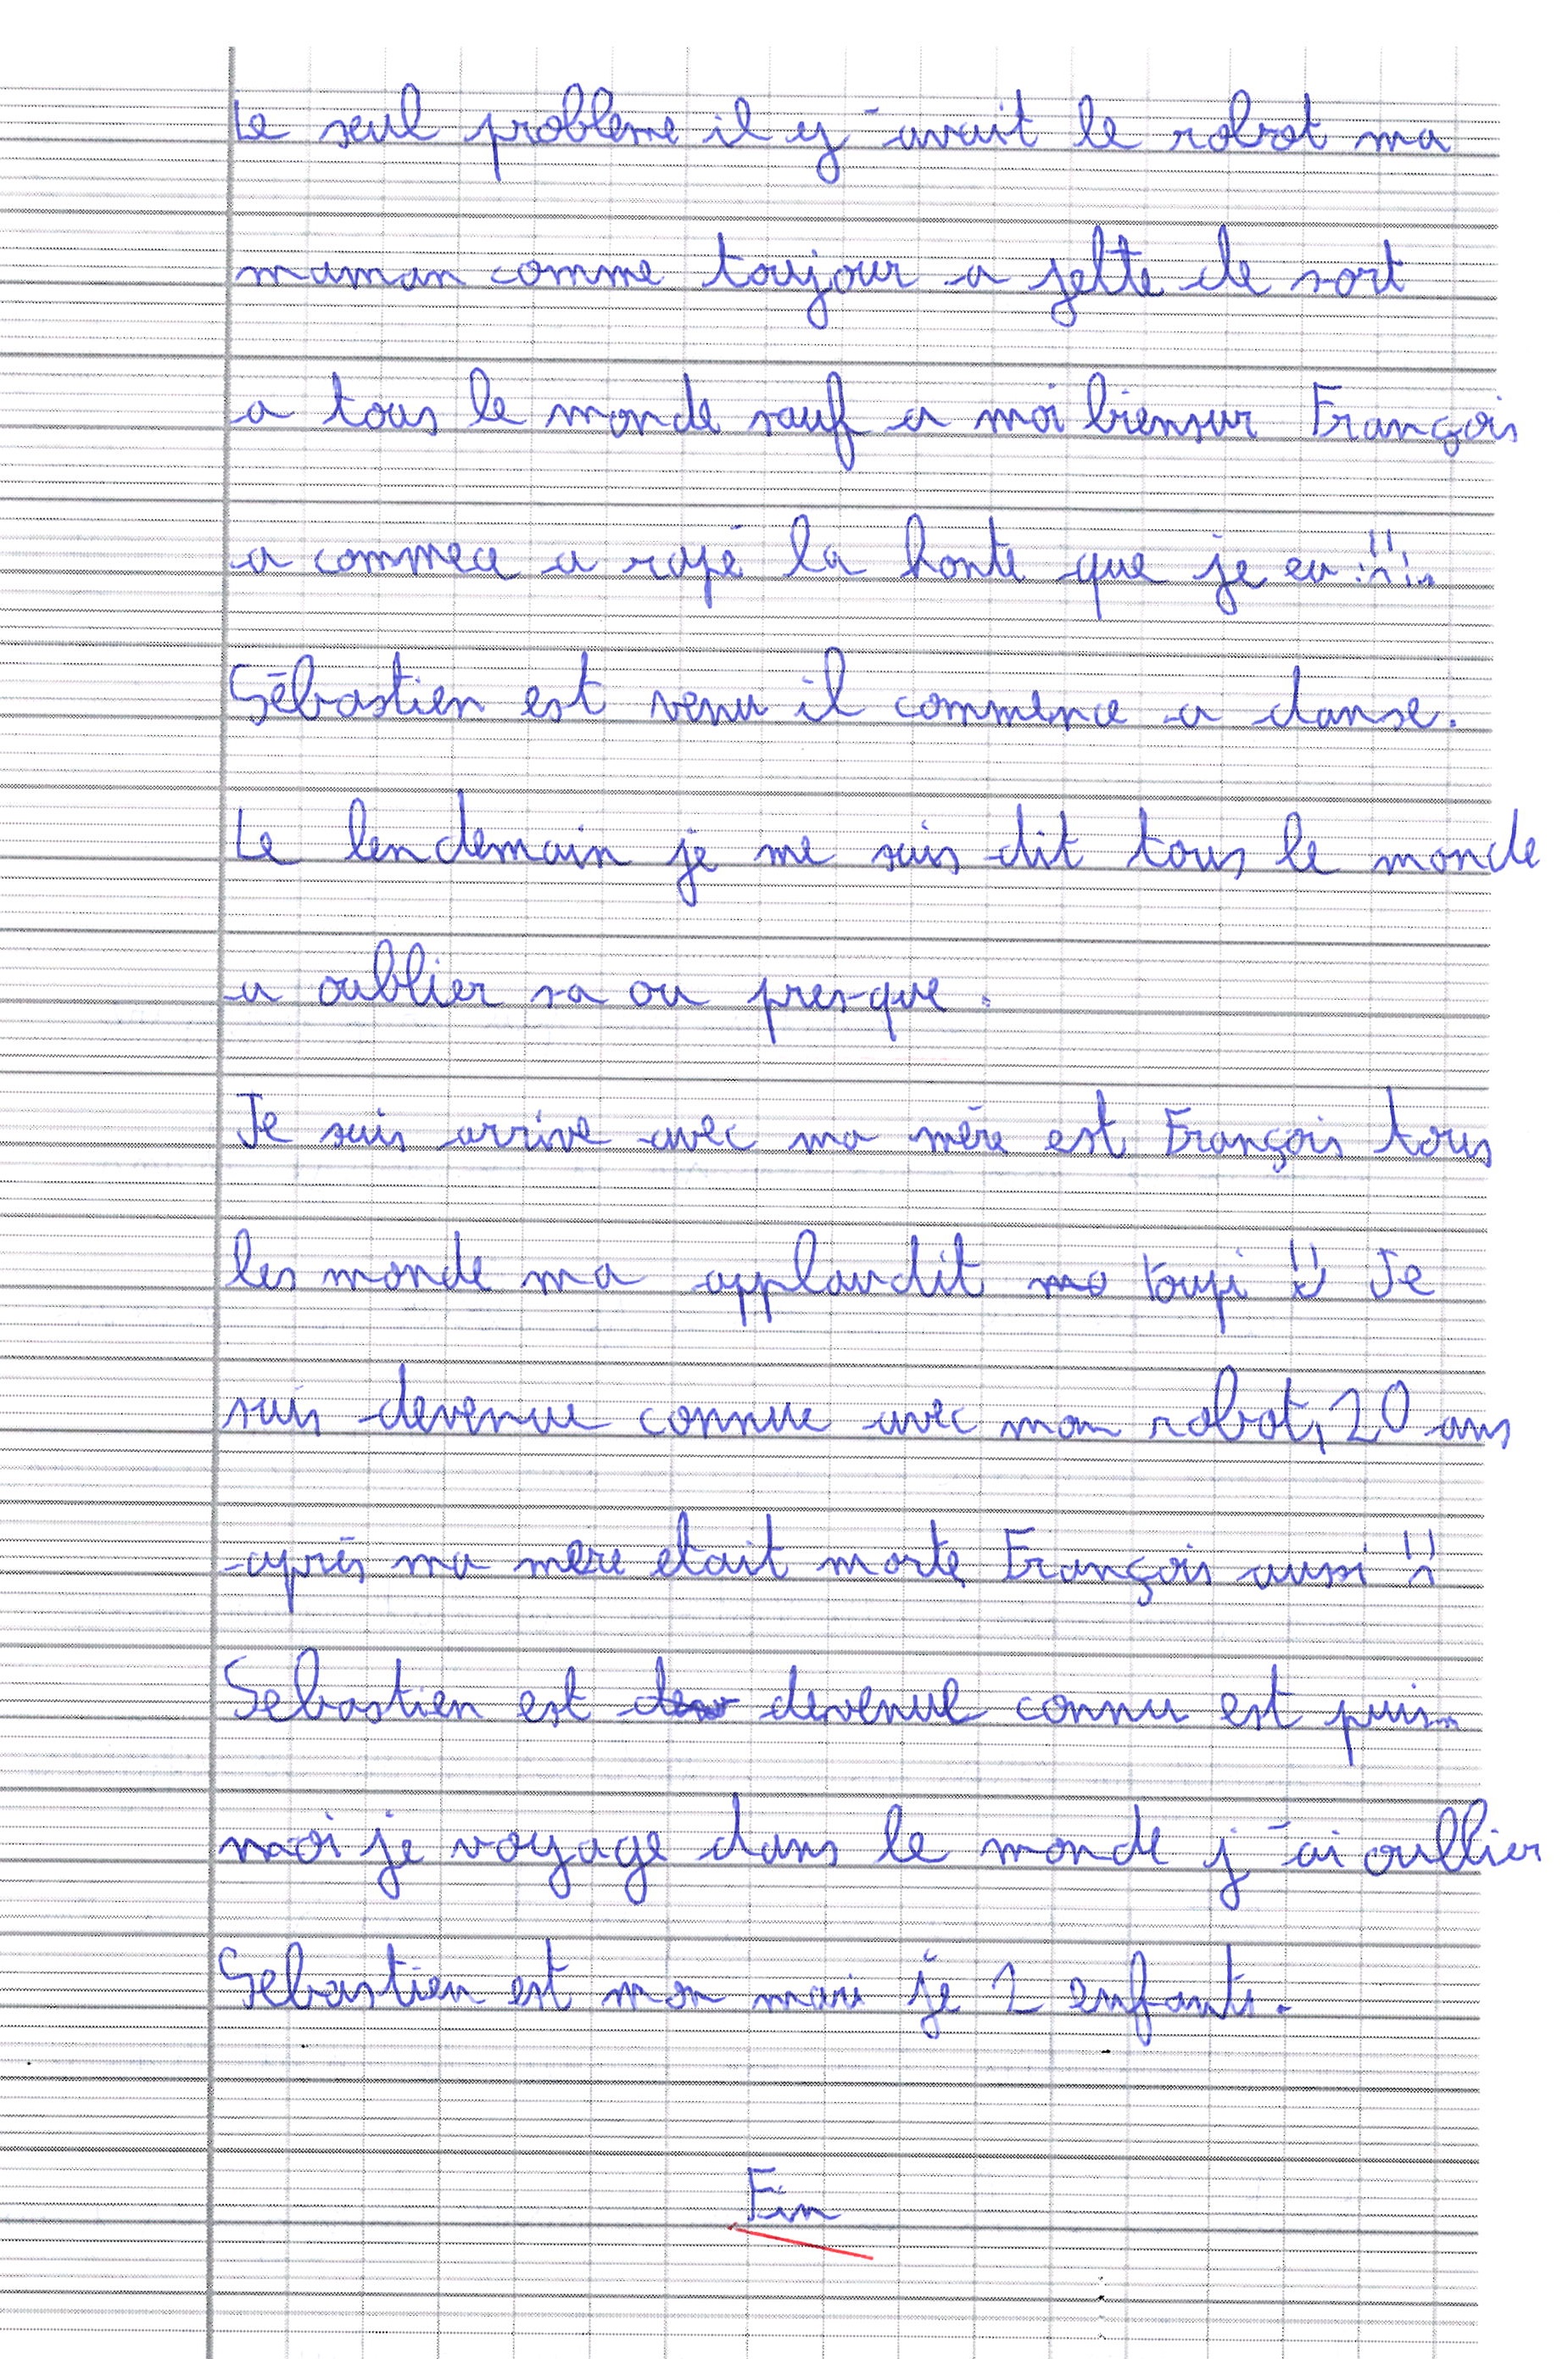 Le seul problème il y'avait le robot ma
maman comme toujour a jette de sort
a tous le monde sauf a moi biensur François
a commea a rapé la honte que je eu
Sébastien est venu il commence a danse.
Le lendemain je me suis dit tous le monde
a oublier sa ou presque.
Je suis arrive avec ma mère est François tous
les monde ma applaudit toupi Je
suis devenue connue avec mon robot, 20 ans
après ma mère etait morte François aussi
Sebastien est devenue connu est puis
moi je voyage dans le monde j'ai oublier
Sebastien est mon mari je 2 enfants.
Fin